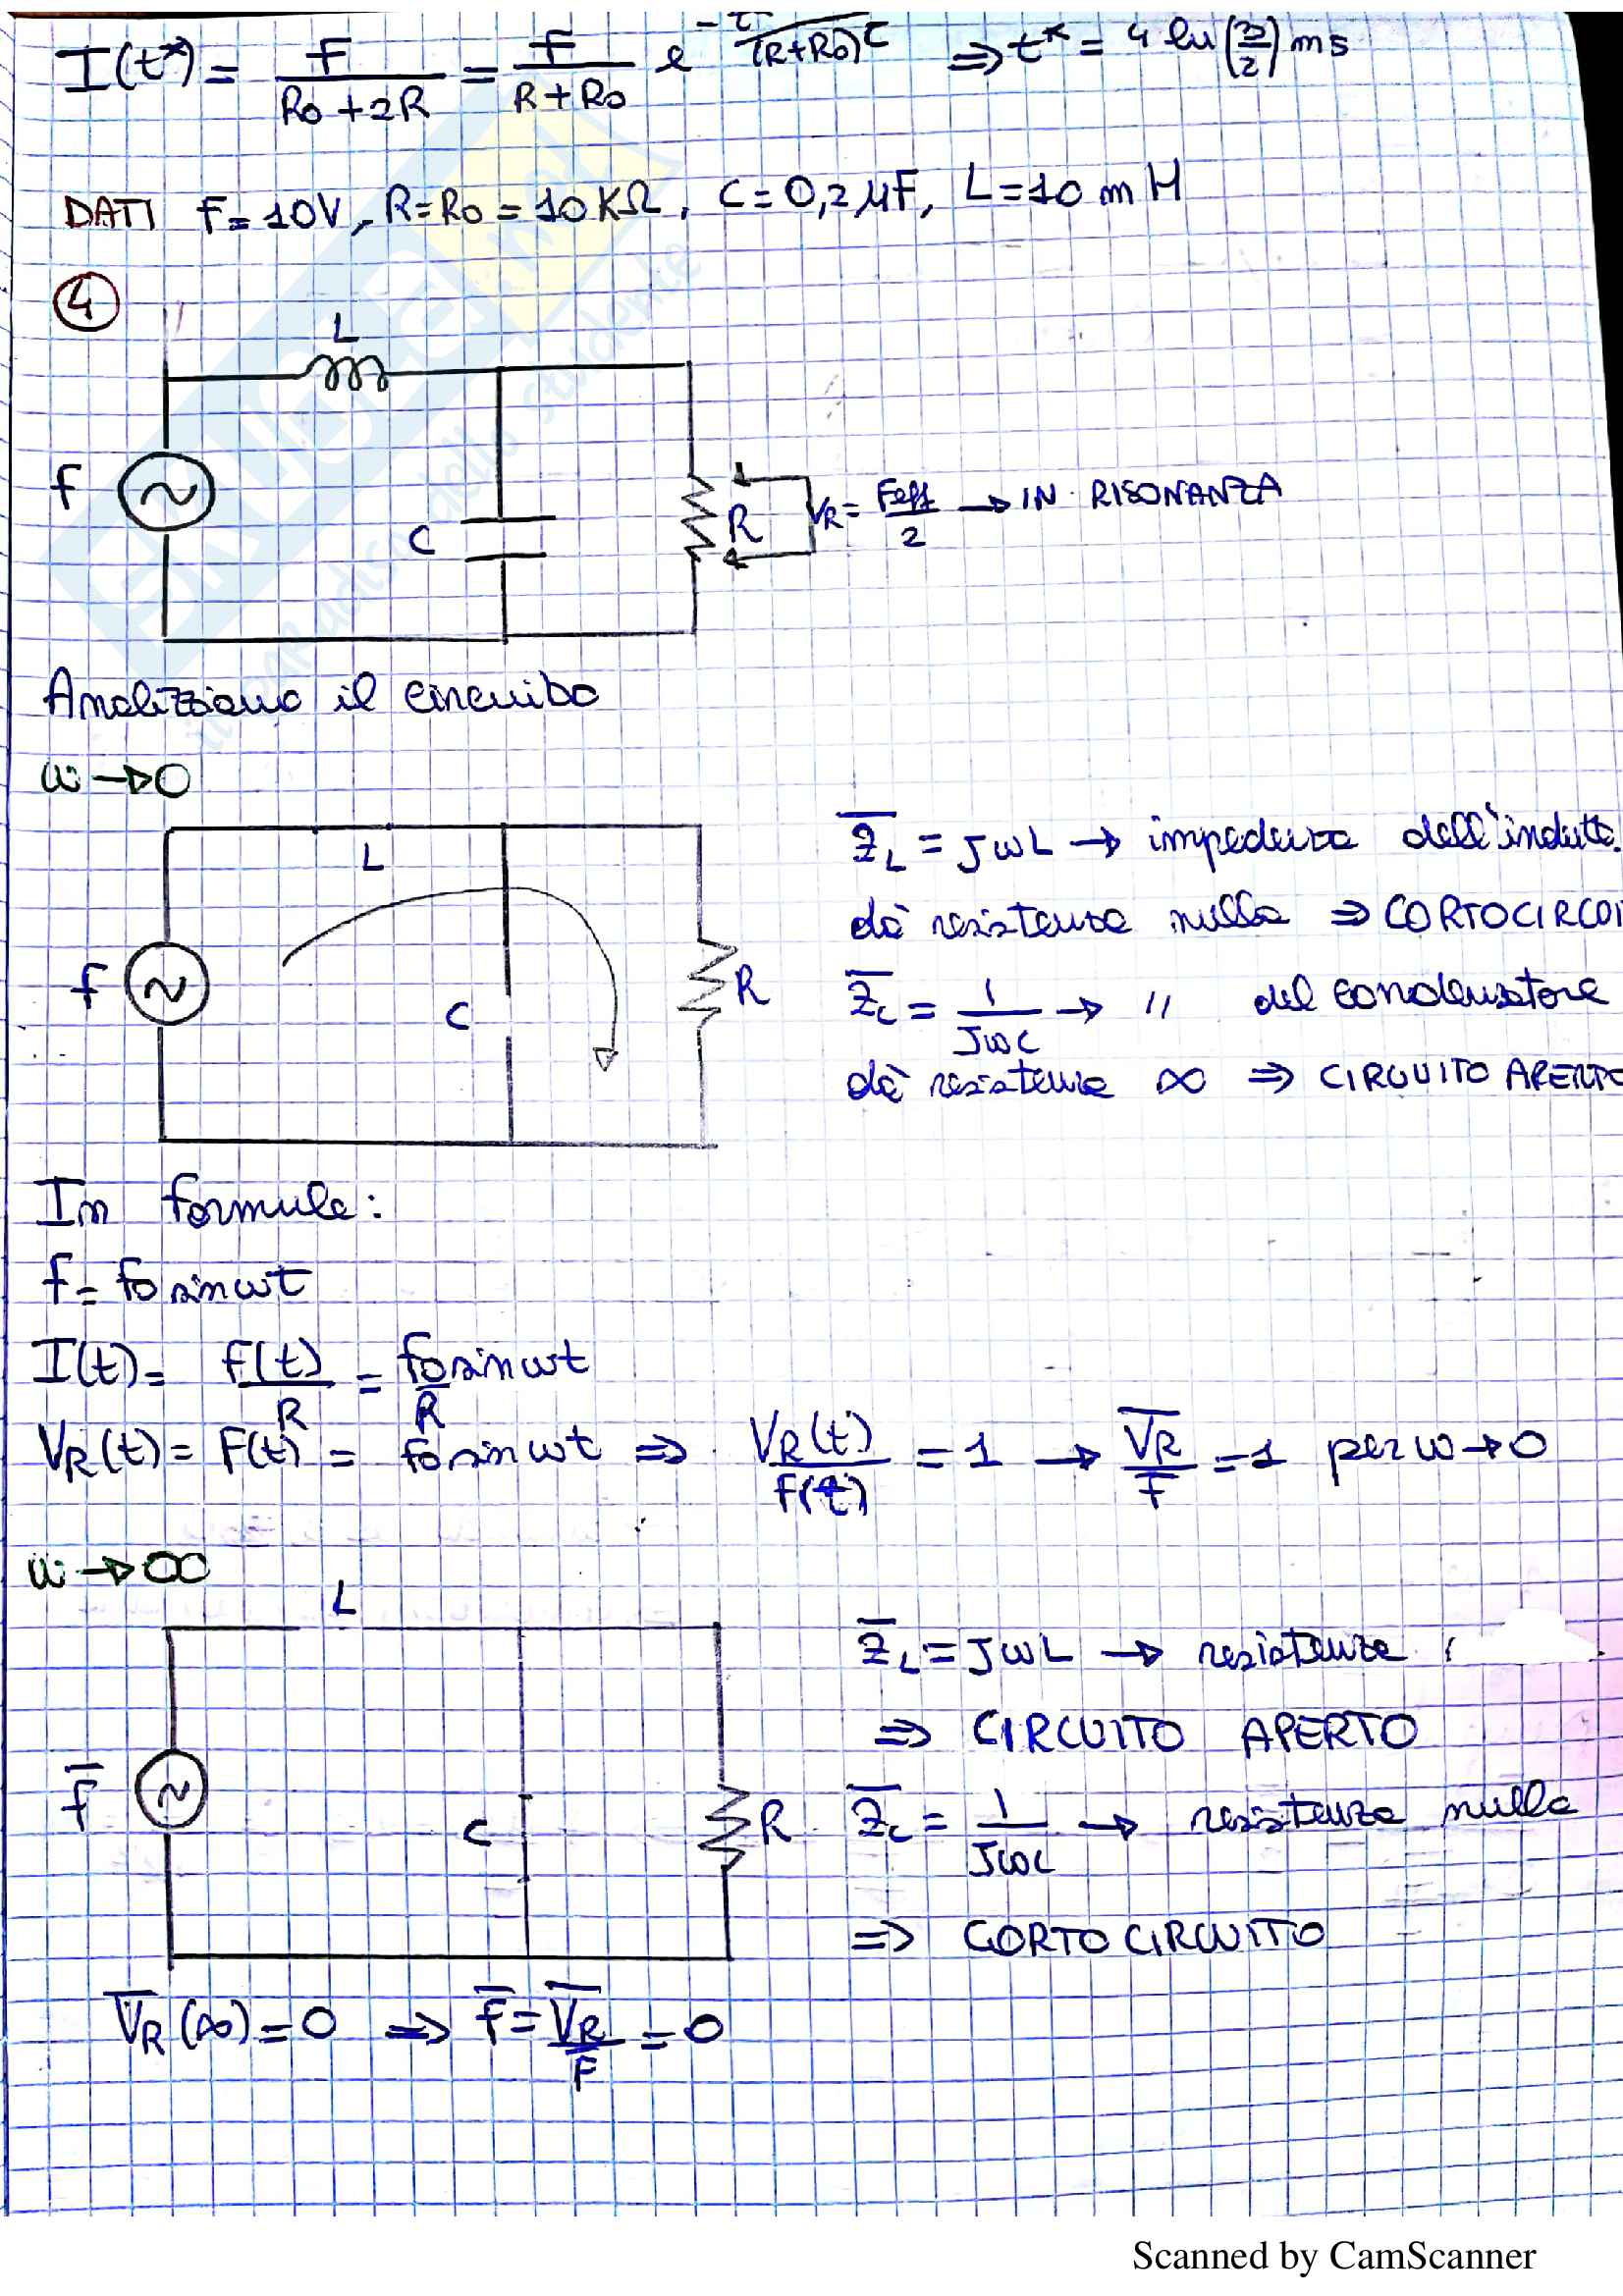 I(t*) = f/(R0+2R) = f/(R+R0) e^(-t*/((R+R0)C)) ⇒ t* = 4 ln(3/2) ms
DATI f=10V, R=R0=10KΩ, C=0,2µF, L=10mH
4
L
f
C
R
VR = Feff/2 → IN RISONANZA
Analizziamo il circuito
ω→0
L
f
C
R
Z̅L = JωL → impedenza dell'indutt.
dà resistenza nulla ⇒ CORTOCIRCUI
Z̅c = 1/(JωC) → " del condensatore
dà resistenza ∞ ⇒ CIRCUITO APERTO
In formule:
f = f0 sinωt
I(t) = f(t)/R = f0/R sinωt
VR(t) = F(t) = f0 sinωt ⇒ VR(t)/f(t) = 1 → V̅R/f̅ = 1 per ω→0
ω→∞
L
f̅
C
R
Z̅L = JωL → resistenza
⇒ CIRCUITO APERTO
Z̅c = 1/(JωC) → resistenza nulla
⇒ CORTOCIRCUITO
V̅R(∞) = 0 ⇒ f̅ = V̅R/F̅ = 0
Scanned by CamScanner